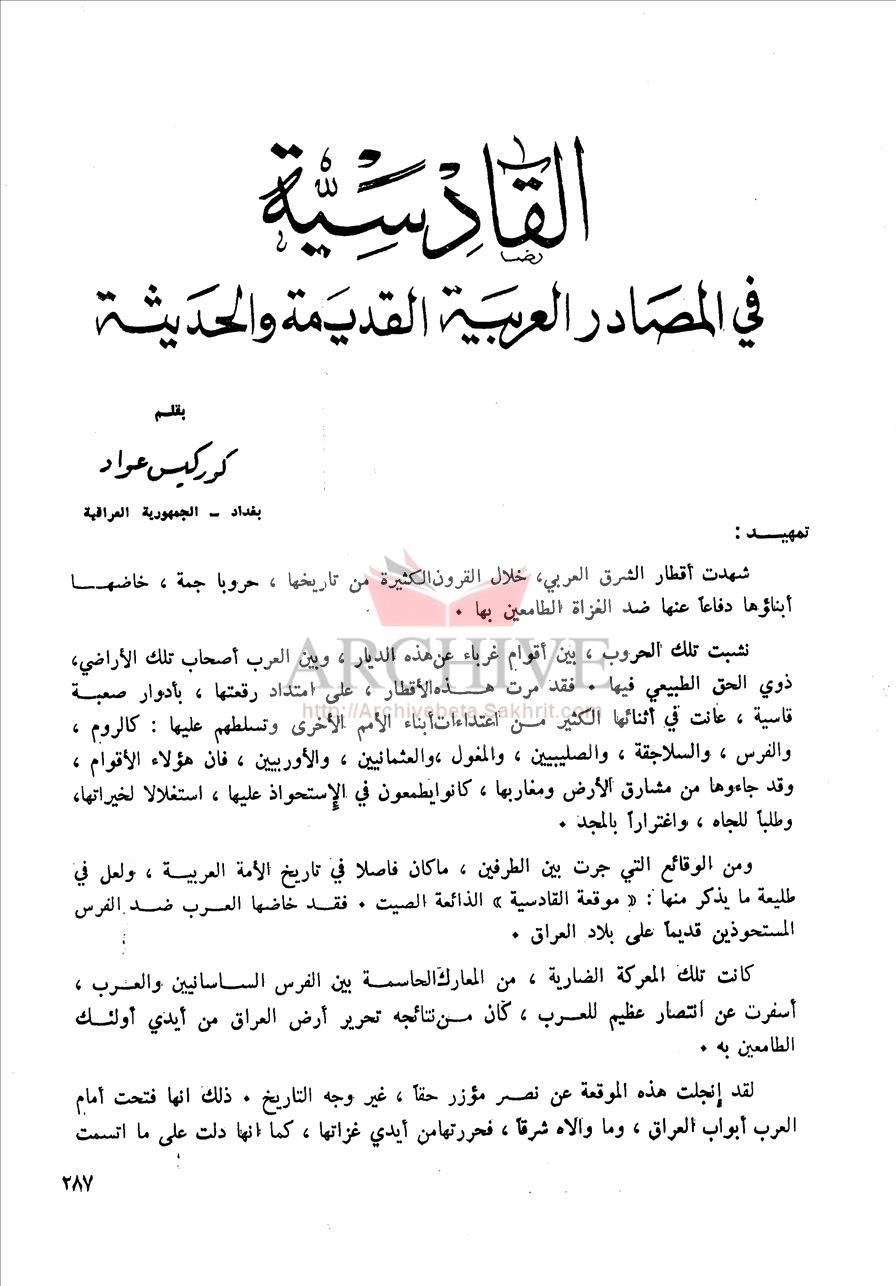 القَادِسِيَّة
رضا
في المصَادر العربيَّة القديمَة والحَديثَة
بقلـم
كوركيس عواد
بغداد – الجمهورية العراقية
تمهيــد :
شهدت أقطار الشرق العربي، خلال القرون الكثيرة من تاريخها ، حروبا جمة ، خاضهــا
أبناؤها دفاعاً عنها ضد الغزاة الطامعين بها .
ARCHIVE
http://Archivebeta.Sakhrit.com
نشبت تلك الحروب ، بين أقوام غرباء عن هذه الديار ، وبين العرب أصحاب تلك الأراضي،
ذوي الحق الطبيعي فيها . فقد مرت هــذه الأقطار ، على امتداد رقعتها ، بأدوار صعبة
قاسية ، عانت في أثنائها الكثير مــن اعتداءات أبناء الأمم الأخرى وتسلطهم عليها : كالروم ،
والفرس ، والسلاجقة ، والصليبيين ، والمغول ، والعثمانيين ، والأوربيين ، فان هؤلاء الأقوام ،
وقد جاءوها من مشارق الأرض ومغاربها ، كانوا يطمعون في الإستحواذ عليها ، استغلالا لخيراتها،
وطلباً للجاه ، واغتراراً بالمجد .
ومن الوقائع التي جرت بين الطرفين ، ماكان فاصلا في تاريخ الأمة العربيــة ، ولعل في
طليعة ما يذكر منها : « موقعة القادسية » الذائعة الصيت . فقــد خاضها العــرب ضــد الفرس
المستحوذين قديماً على بلاد العراق .
كانت تلك المعركة الضارية ، من المعارك الحاسمــة بين الفرس الســاسانيين والعــرب ،
أسفرت عن انتصار عظيم للعــرب ، كان مــن نتائجه تحرير أرض العراق من أيدي أولئــك
الطامعين به .
لقد إنجلت هذه الموقعة عن نصــر مؤزر حقاً ، غير وجه التاريخ . ذلك انها فتحت أمام
العرب أبواب العراق ، وما والاه شرقاً ، فحررتها من أيدي غزاتها ، كما انها دلت على ما اتسمت
٢٨٧